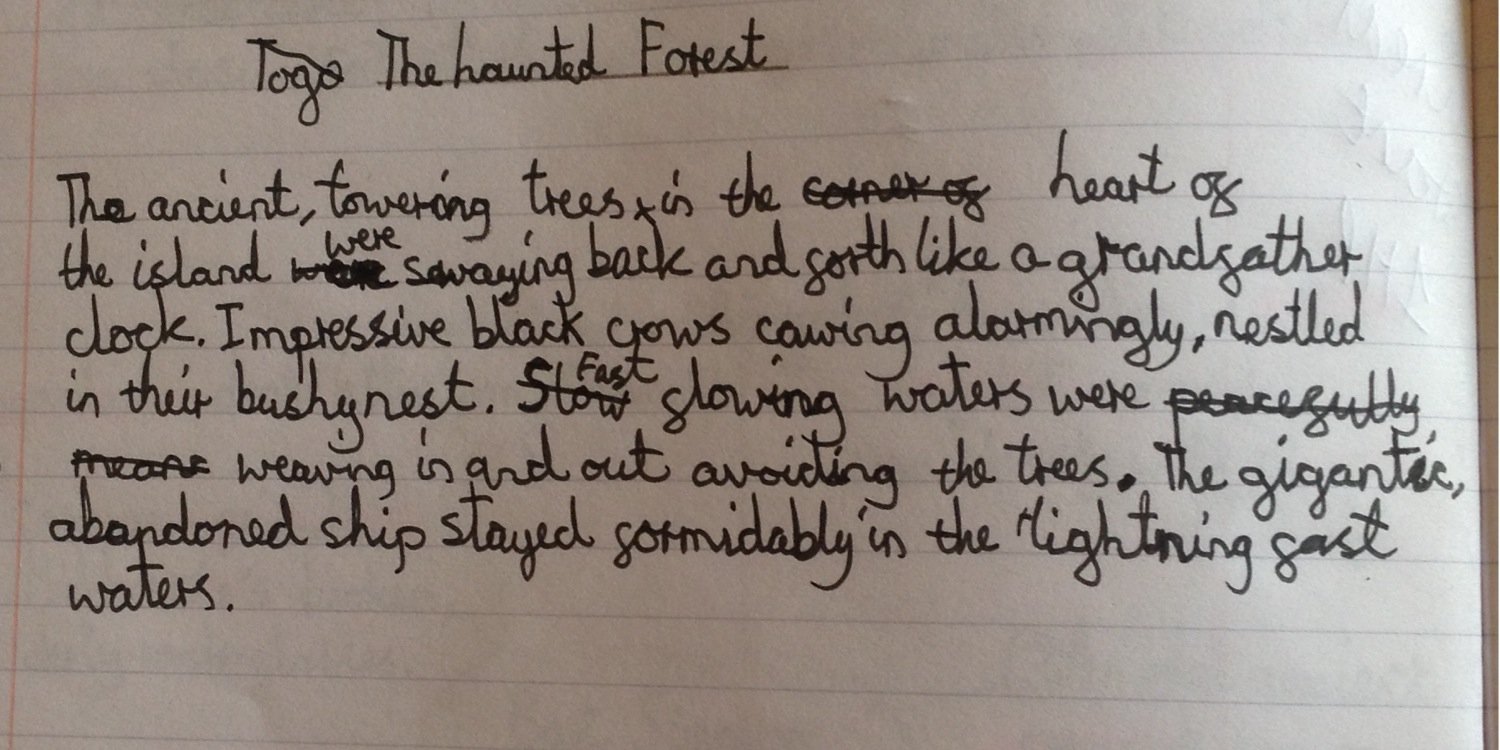 Togo The haunted Forest
The ancient, towering trees, in the corner of heart of
the island were swaying back and forth like a grandfather
clock. Impressive black crows cawing alarmingly, nestled
in their bushy nest. Slow Fast flowing waters were peacefully
weaving in and out avoiding the trees. The gigantic,
abandoned ship stayed formidably in the lightning fast
waters.